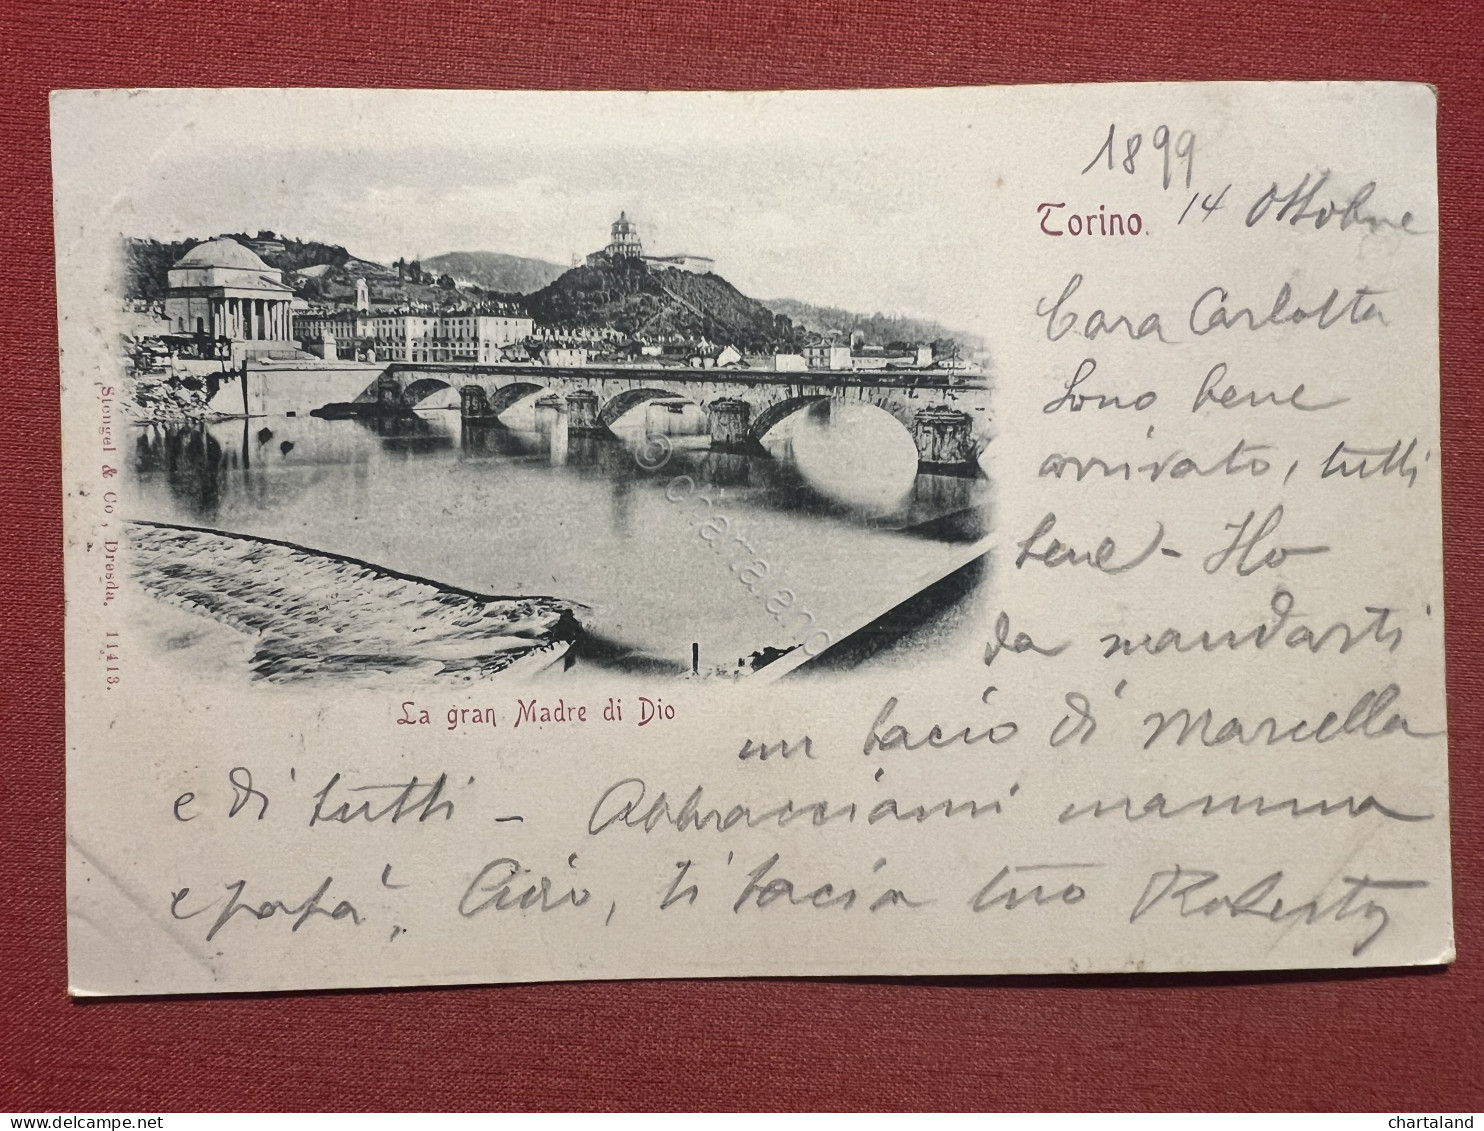 1899
Torino. 14 Ottobre
Cara Carlotta
Sono bene
arrivato, tutti
bene - Ho
da mandarti
un bacio di Marcella
e di tutti - Abbracciami mamma
e papà, Ciao, ti bacia tuo Roberto
La gran Madre di Dio
Stengel & Co, Dresda. 11413.
©cartaland
chartaland
delcampe.net